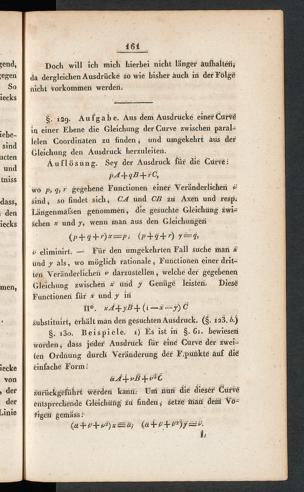 161
Doch will ich mich hierbei nicht länger aufhalten,
da dergleichen Ausdrücke so wie bisher auch in der Folge
nicht vorkommen werden.
§. 129. Aufgabe. Aus dem Ausdrucke einer Curve
in einer Ebene die Gleichung der Curve zwischen paral-
lelen Coordinaten zu finden, und umgekehrt aus der
Gleichung den Ausdruck herzuleiten.
Auflösung. Sey der Ausdruck für die Curve:
pA+qB+rC,
wo p, q, r gegebene Functionen einer Veränderlichen v
sind, so findet sich, CA und CB zu Axen und resp.
Längenmaßen genommen, die gesuchte Gleichung zwi-
schen x und y, wenn man aus den Gleichungen
(p+q+r)x=p; (p+q+r) y=q,
v eliminirt. — Für den umgekehrten Fall suche man x
und y als, wo möglich rationale, Functionen einer drit-
ten Veränderlichen v darzustellen, welche der gegebenen
Gleichung zwischen x und y Genüge leisten. Diese
Functionen für x und y in
xA+yB+(1—x—y) C
substituirt, erhält man den gesuchten Ausdruck. (§. 123. b.)
§. 130. Beispiele. 1) Es ist in §. 61. bewiesen
worden, dass jeder Ausdruck für eine Curve der zwei-
ten Ordnung durch Veränderung der F.punkte auf die
einfache Form:
aA+vB+v²C
zurückgeführt werden kann. Um nun die dieser Curve
entsprechende Gleichung zu finden, setze man dem Vo-
rigen gemäss:
(a+v+v²)x=a; (a+v+v²)y=v.
L
gend,
gegen
So
iecks
iebe-
sind
acten
und
tniss
dass,
den
iecks
men,
iecke
von
der
der
Linie